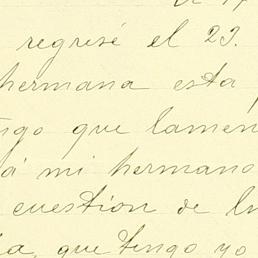 regresé el 23.
hermana esta
go que lamen
á mi hermano
cuestion de
que tengo yo